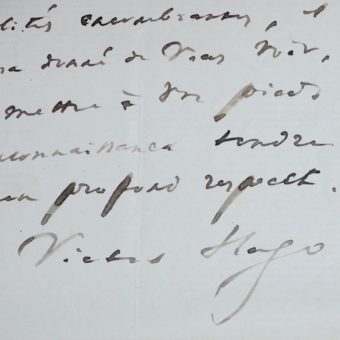 lités embrassées, il
donné de Vous Voir,
mettre à Vos pieds
connaissance tendre
mon profond respect.
Victor Hugo